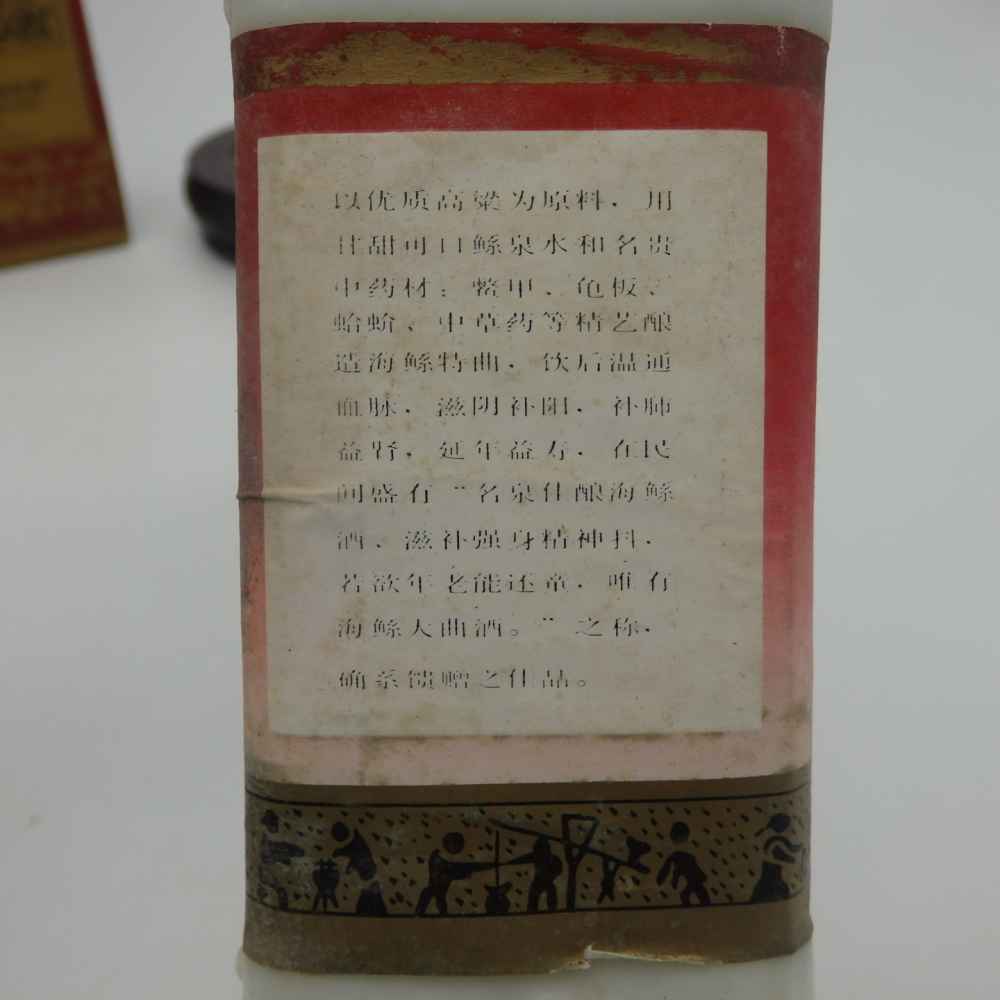 以优质高粱为原料，用
甘甜可口鲧泉水和名贵
中药材：鳖甲、龟板、
蛤蚧、中草药等精艺酿
造海鲧特曲，饮后温通
血脉，滋阴补阳，补肺
益肾，延年益寿，在民
间盛有“名泉佳酿海鲧
酒、滋补强身精神抖，
若欲年老能还童，唯有
海鲧大曲酒。”之称，
确系馈赠之佳品。